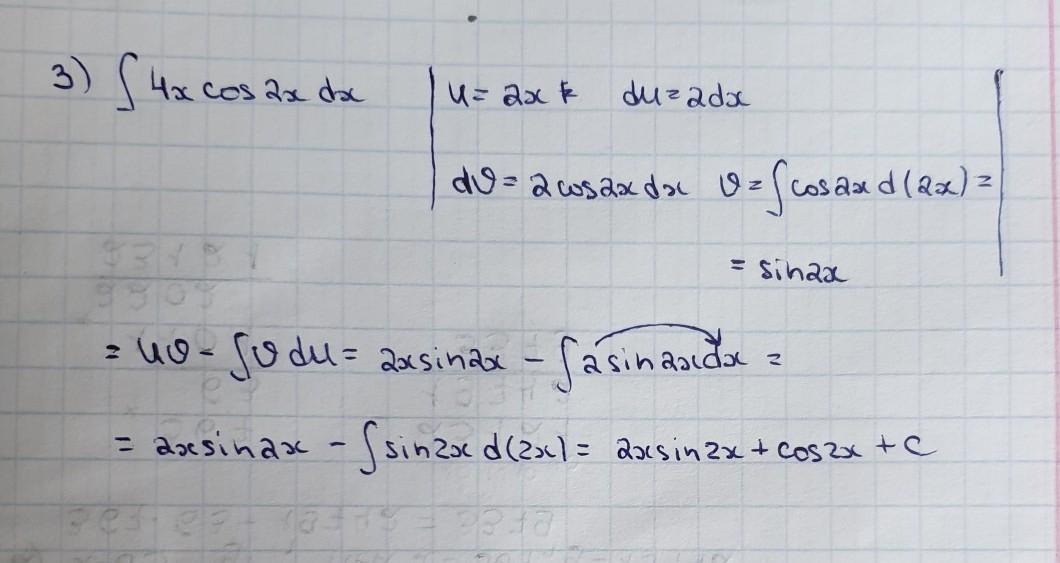 3) ∫ 4x cos 2x dx | u = 2x du = 2dx
dv = 2 cos 2x dx v = ∫ cos 2x d(2x) =
= sin 2x
= uv - ∫ v du = 2x sin 2x - ∫ 2 sin 2x dx =
= 2x sin 2x - ∫ sin 2x d(2x) = 2x sin 2x + cos 2x + C